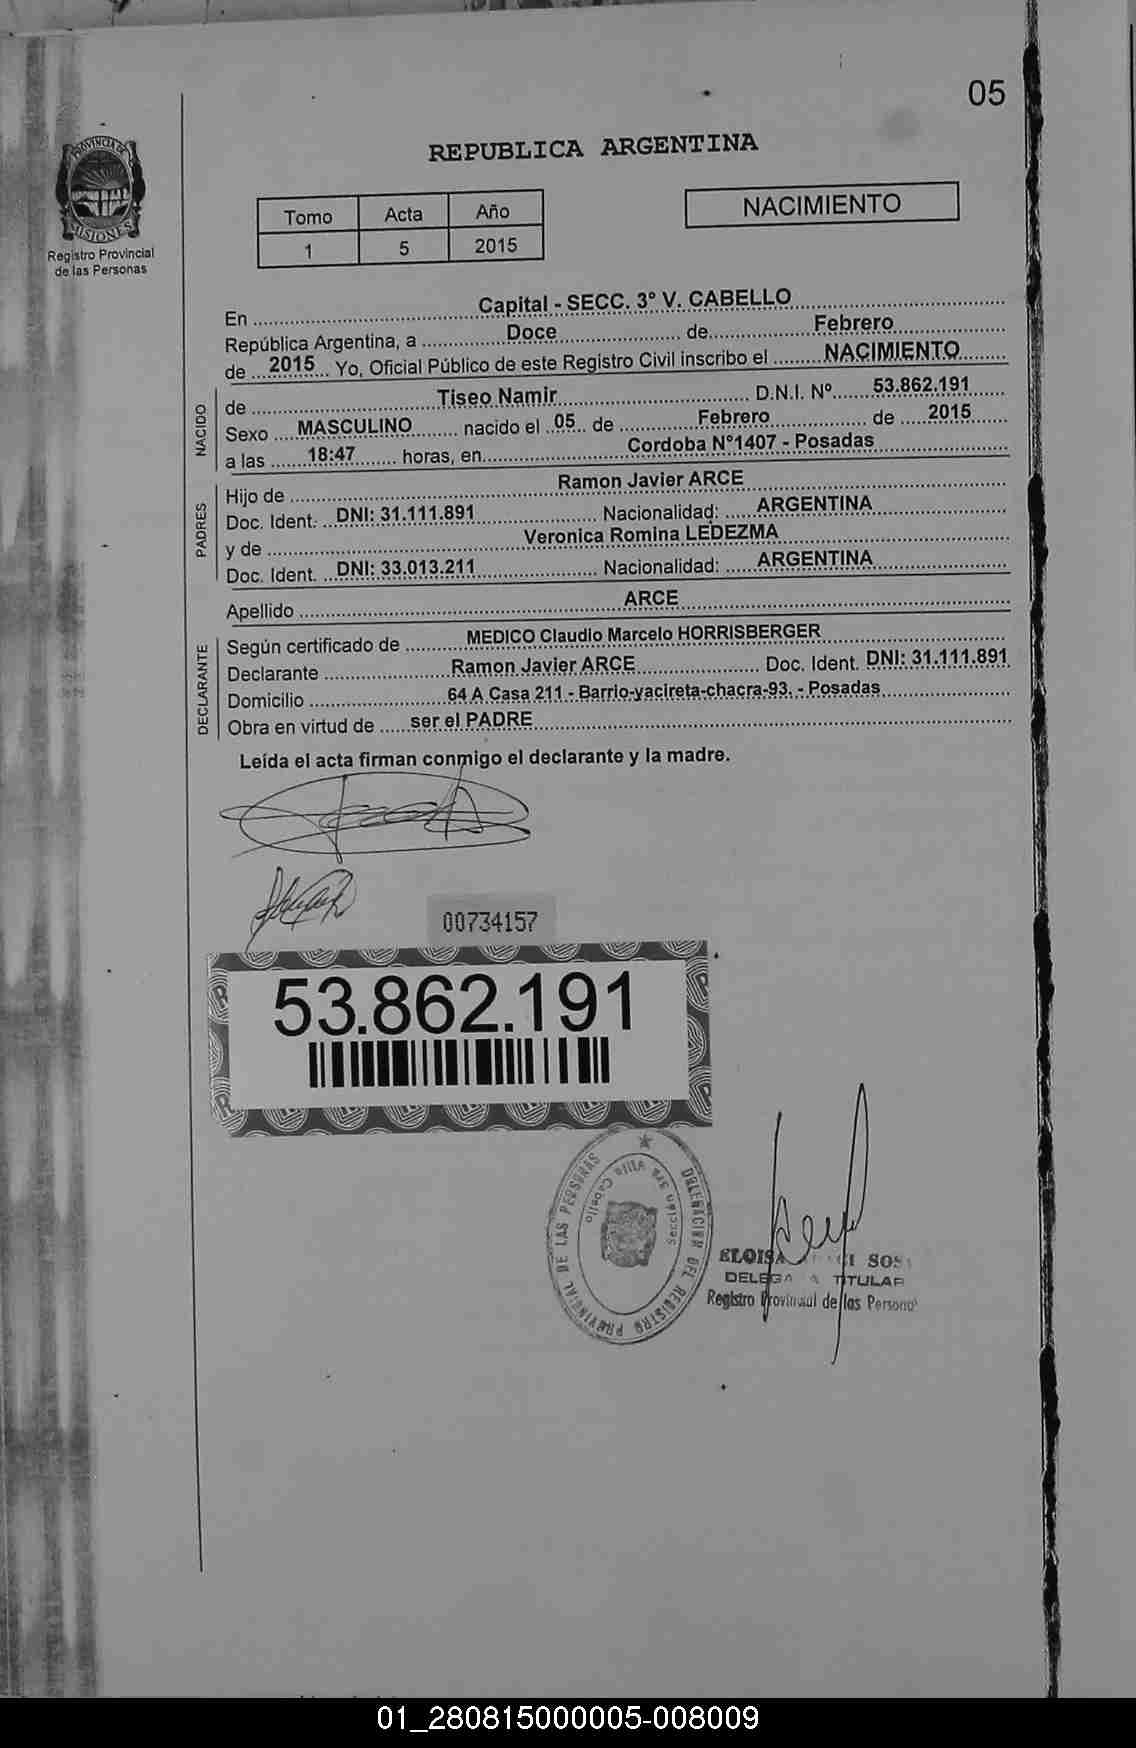 05
PROVINCIA DE
MISIONES
Registro Provincial
de las Personas
REPUBLICA ARGENTINA
Tomo Acta Año
1 5 2015
NACIMIENTO
En Capital - SECC. 3° V. CABELLO
República Argentina, a Doce de Febrero
de 2015 Yo, Oficial Público de este Registro Civil inscribo el NACIMIENTO
NACIDO
de Tiseo Namir D.N.I. Nº 53.862.191
Sexo MASCULINO nacido el 05 de Febrero de 2015
a las 18:47 horas, en Cordoba N°1407 - Posadas
PADRES
Hijo de Ramon Javier ARCE
Doc. Ident. DNI: 31.111.891 Nacionalidad: ARGENTINA
y de Veronica Romina LEDEZMA
Doc. Ident. DNI: 33.013.211 Nacionalidad: ARGENTINA
Apellido ARCE
DECLARANTE
Según certificado de MEDICO Claudio Marcelo HORRISBERGER
Declarante Ramon Javier ARCE Doc. Ident. DNI: 31.111.891
Domicilio 64 A Casa 211 - Barrio-yacireta-chacra-93. - Posadas
Obra en virtud de ser el PADRE
Leída el acta firman conmigo el declarante y la madre.
00734157
53.862.191
DELEGACION DEL REGISTRO PROVINCIAL DE LAS PERSONAS
Sección 3ra Villa Cabello
SOS
TITULAR
Registro Provincial de las Persona
01_280815000005-008009